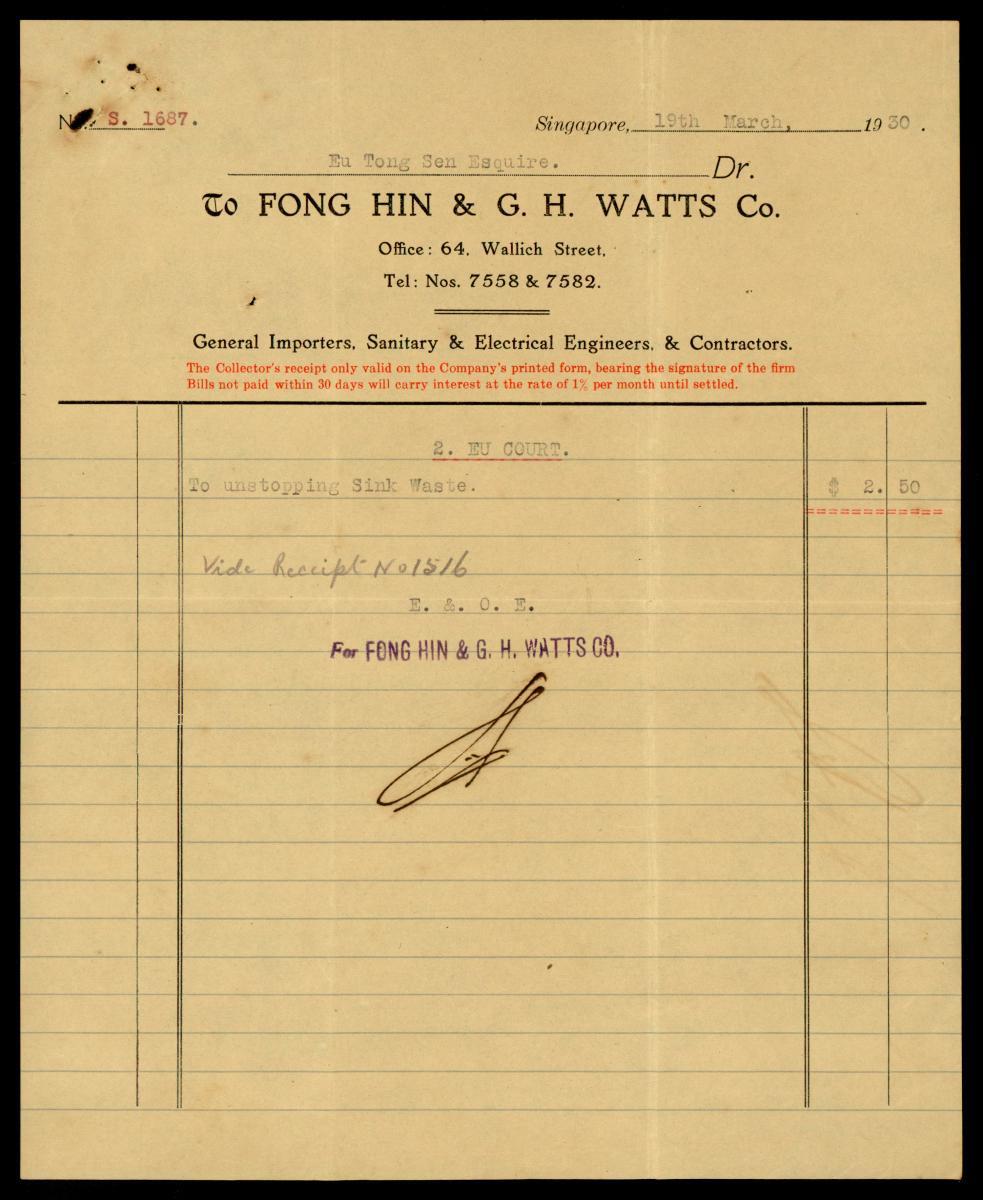 S. 1687.
Singapore, 19th March, 1930.
Eu Tong Sen Esquire. Dr.
To FONG HIN & G. H. WATTS Co.
Office: 64, Wallich Street,
Tel: Nos. 7558 & 7582.
General Importers, Sanitary & Electrical Engineers, & Contractors.
The Collector's receipt only valid on the Company's printed form, bearing the signature of the firm
Bills not paid within 30 days will carry interest at the rate of 1% per month until settled.
2. EU COURT.
To unstopping Sink Waste. $ 2. 50
Vide Receipt No 1516
E. &. O. E.
For FONG HIN & G. H. WATTS CO.